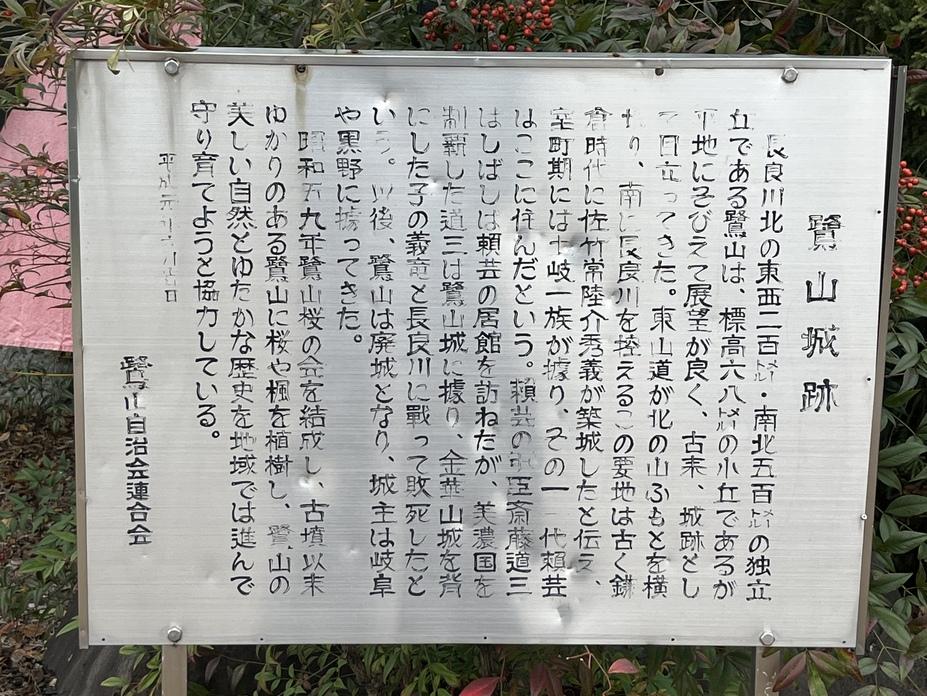 鷺山城跡
長良川北の東西二百メートル・南北五百メートルの独立
丘である鷺山は、標高六八メートルの小丘であるが
平地にそびえて展望が良く、古来、城跡とし
て目立ってきた。東山道が北の山ふもとを横
切り、南に長良川を控えるこの要地は古く鎌
倉時代に佐竹常陸介秀義が築城したと伝え、
室町期には土岐一族が據り、その一 代頼芸
はここに住んだという。頼芸の 臣斎藤道三
はしばしば頼芸の居館を訪ねたが、美濃国を
制覇した道三は鷺山城に據り、金華山城を背
にした子の義竜と長良川に戦って敗死したと
いう。以後、鷺山は廃城となり、城主は岐阜
や黒野に據ってきた。
昭和五九年鷺山桜の会を結成し、古墳以来
ゆかりのある鷺山に桜や楓を植樹し、鷺山の
美しい自然とゆたかな歴史を地域では進んで
守り育てようと協力している。
平成元年 月 日
鷺山自治会連合会